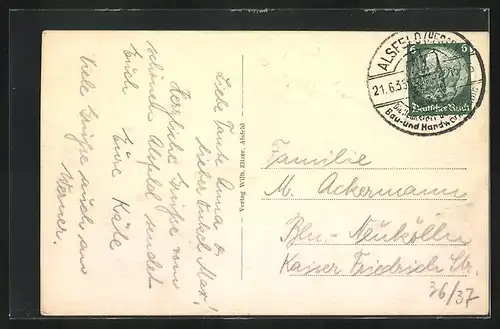 Liebe Tante Anna &
lieber Onkel Max!
Herzliche Grüße vom
schönen Alsfeld sendet
Euch Eure Käte
Viele Grüße auch an
Werner.
Familie
M. Ackermann
Bln.-Neukölln
Kaiser Friedrich Str.
36/37
ALSFELD
21.6.33
Bau- und
Deutsches Reich
6